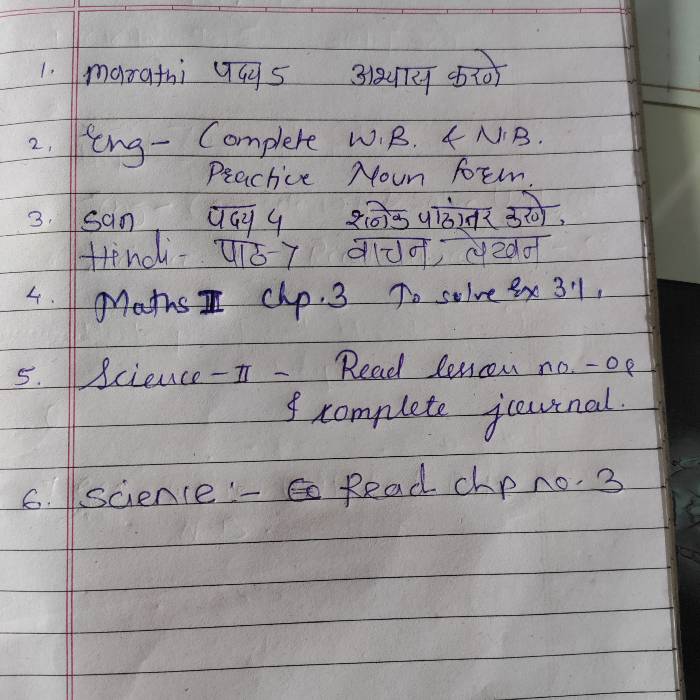 1. Marathi पद्य 5 अभ्यास करणे
2. Eng - Complete W.B. & N.B.
Practice Noun form.
3. San पद्य 4 श्लोक पाठांतर करणे.
Hindi - पाठ-7 वाचन, लेखन
4. Maths II Chp. 3 To solve Ex 3.1.
5. Science-II - Read lesson no. -
& complete journal.
6. Science :- Read chp no. 3